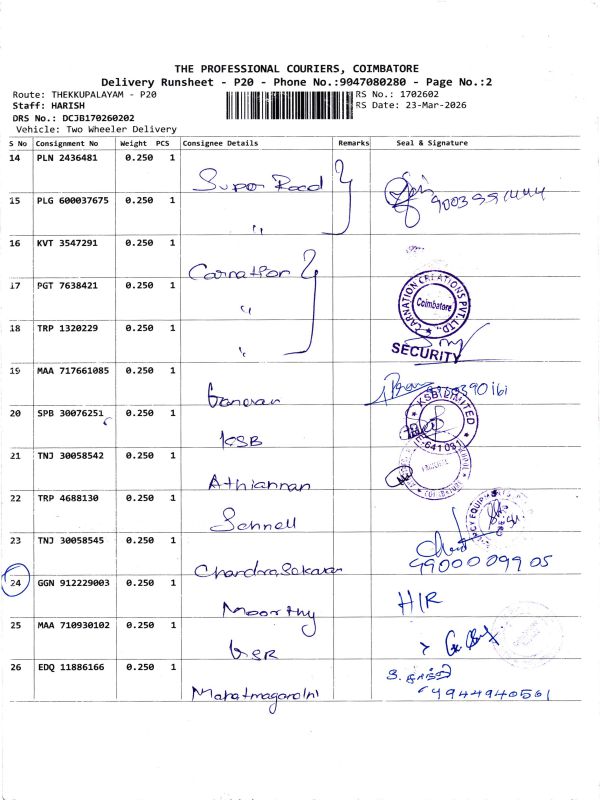 THE PROFESSIONAL COURIERS, COIMBATORE
Delivery Runsheet - P20 - Phone No.:9047080280 - Page No.:2
Route: THEKKUPALAYAM - P20
RS No.: 1702602
Staff: HARISH
RS Date: 23-Mar-2026
DRS No.: DCJB170260202
Vehicle: Two Wheeler Delivery
S No Consignment No Weight PCS Consignee Details Remarks Seal & Signature
14 PLN 2436481 0.250 1
Super Road
15 PLG 600037675 0.250 1
"
16 KVT 3547291 0.250 1
Carnation
17 PGT 7638421 0.250 1
"
CARNATION CREATIONS PVT. LTD.
Coimbatore
18 TRP 1320229 0.250 1
"
SECURITY
19 MAA 717661085 0.250 1
20 SPB 30076251 0.250 1
KSB
KSB LIMITED
641 031
21 TNJ 30058542 0.250 1
Athiannan
22 TRP 4688130 0.250 1
Schnell
23 TNJ 30058545 0.250 1
Chandra Sekaran
9900009905
24 GGN 912229003 0.250 1
Moorthy
H/R
25 MAA 710930102 0.250 1
GSR
26 EDQ 11886166 0.250 1
Mahatmagandhi
4944940561